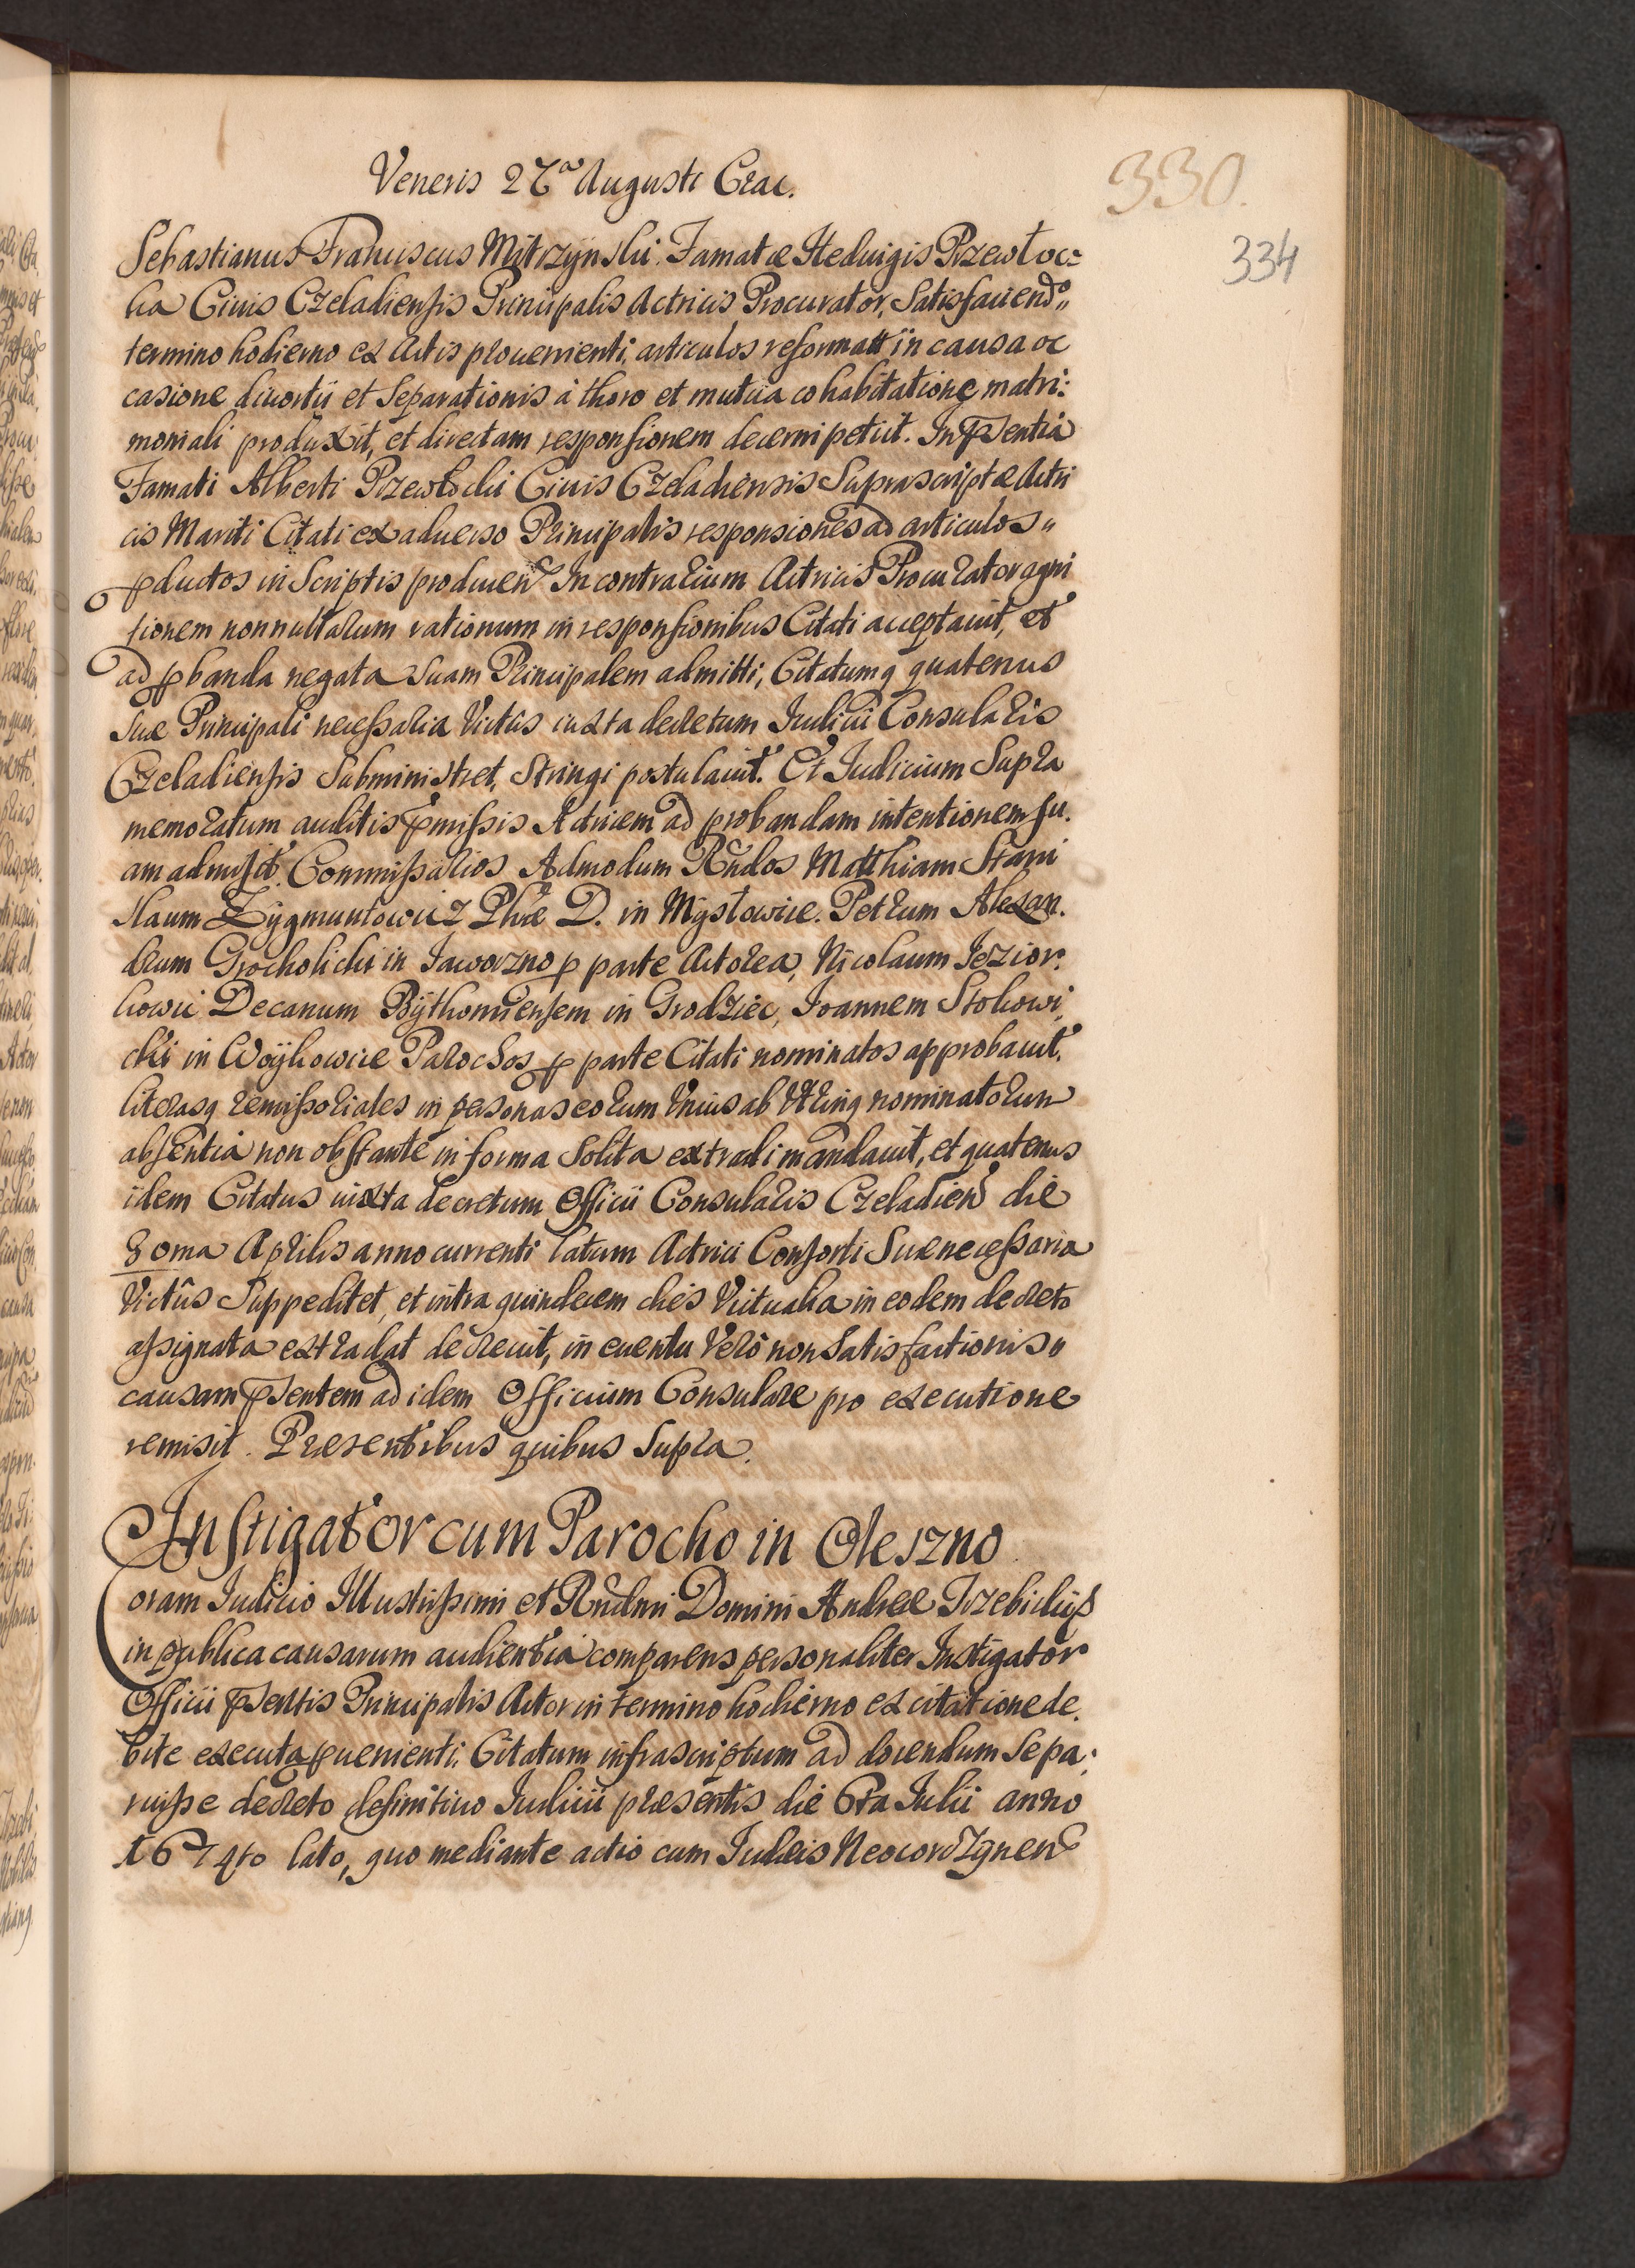 Veneris 27a Augusti Crac.
330.
334
Sebastianus Franciscus Mitrzynski Famatæ Hedvigis Przewłoc:
ka Civis Czeladiensis Principalis Actricis Procurator, Satisfaciendo
termino hodierno ex Actis provenienti, articulos reformatt in causa oc
casione divortii et Separationis à thoro et mutua cohabitatione matri:
moniali produxit, et directam responsionem decerni petiit. In pñsentia
Famati Alberti Przewłocki Civis Czeladiensis Suprascriptæ Actri
cis Mariti Citati ex adverso Principalis responsiones ad articulos
pductos in Scriptis producen In contrarium Actricis Procurator agni
tionem nonnullarum rationum in responsionibus Citati acceptavit, et
ad pbanda negata Suam Principalem admitti, Citatumq quatenus
Suæ Principali necessaria Victûs iuxta decretum Iudicii Consularis
Czeladiensis Subministret, Stringi postulavit. Et Iudicium Supra
memoratum auditis pmissis Actricem ad probandam intentionem su.
am admisit Commissarios Admodum Rñdos Matthiam Stani
slaum Zygmuntowicz Phiæ D. in Mysłowice. Petrum Alexan.
drum Grocholicki in Iaworzno p parte Actorea, Nicolaum Iezior.
kowic Decanum Bythomiensem in Grodziec, Ioannem Stokowi
cki in Woÿkowice Parochos p parte Citati nominatos approbavit,
literasq remissoriales in personas eorum Unius ab Utrinq nominatorum
absentia non obstante in forma Solita extradi mandavit, et quatenus
idem Citatus iuxta decretum Officii Consularis Czeladien die
8oma Aprilis anno currenti latum Actrici Consorti Suæ necessaria
Victûs Suppeditet, et intra quindecem dies Victualia in eodem decreto
assignata extradat decrevit, in eventu Verò non Satisfactionis
causam pñsentem ad idem Officium Consulare pro executione
remisit. Præsentibus quibus Supra.
Instigator cum Parocho in Oleszno
Coram Iudicio Illustrissimi et Rñdmi Domini Andreæ Trzebicki
in publica causarum audientia comparens personaliter Instigator
Officii pñsentis Principalis Actor in termino hodierno ex citatione de.
bite executa pvenienti Citatum infrascriptum ad docendum Sepa.
ruisse decreto definitivo Iudicii præsentis die 6ta Iulii anno
1674to lato, quo mediante actio cum Iudæis Neocordzynen